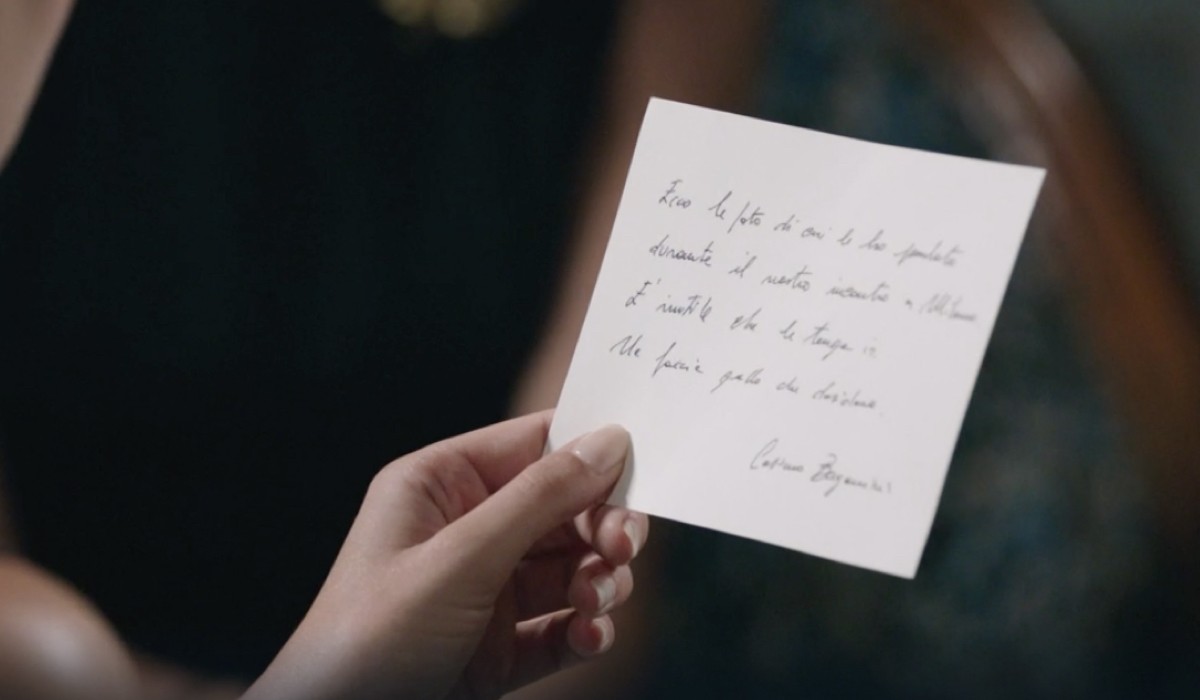 Ecco le foto di cui le ho parlato
durante il nostro incontro a Milano.
E' inutile che le tenga io.
Ne faccia quello che desidera.
Cosimo Bergamini